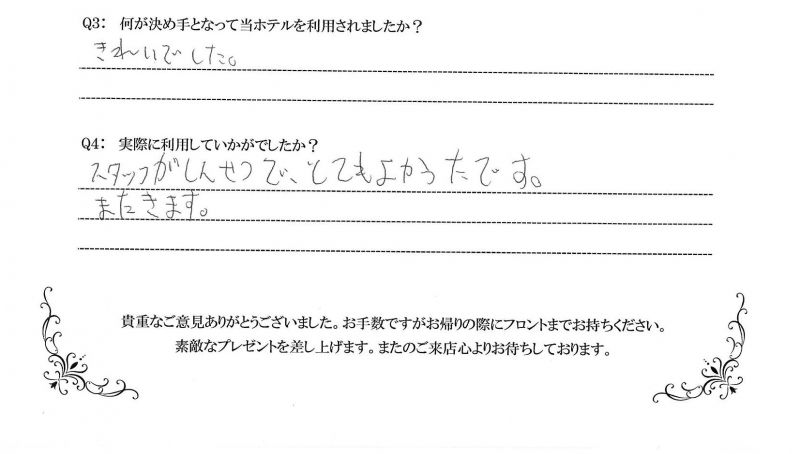 Q3: 何が決め手となって当ホテルを利用されましたか?
きれいでした。
Q4: 実際に利用していかがでしたか?
スタッフがしんせつで、とてもよかったです。
またきます。
貴重なご意見ありがとうございました。お手数ですがお帰りの際にフロントまでお持ちください。
素敵なプレゼントを差し上げます。またのご来店心よりお待ちしております。